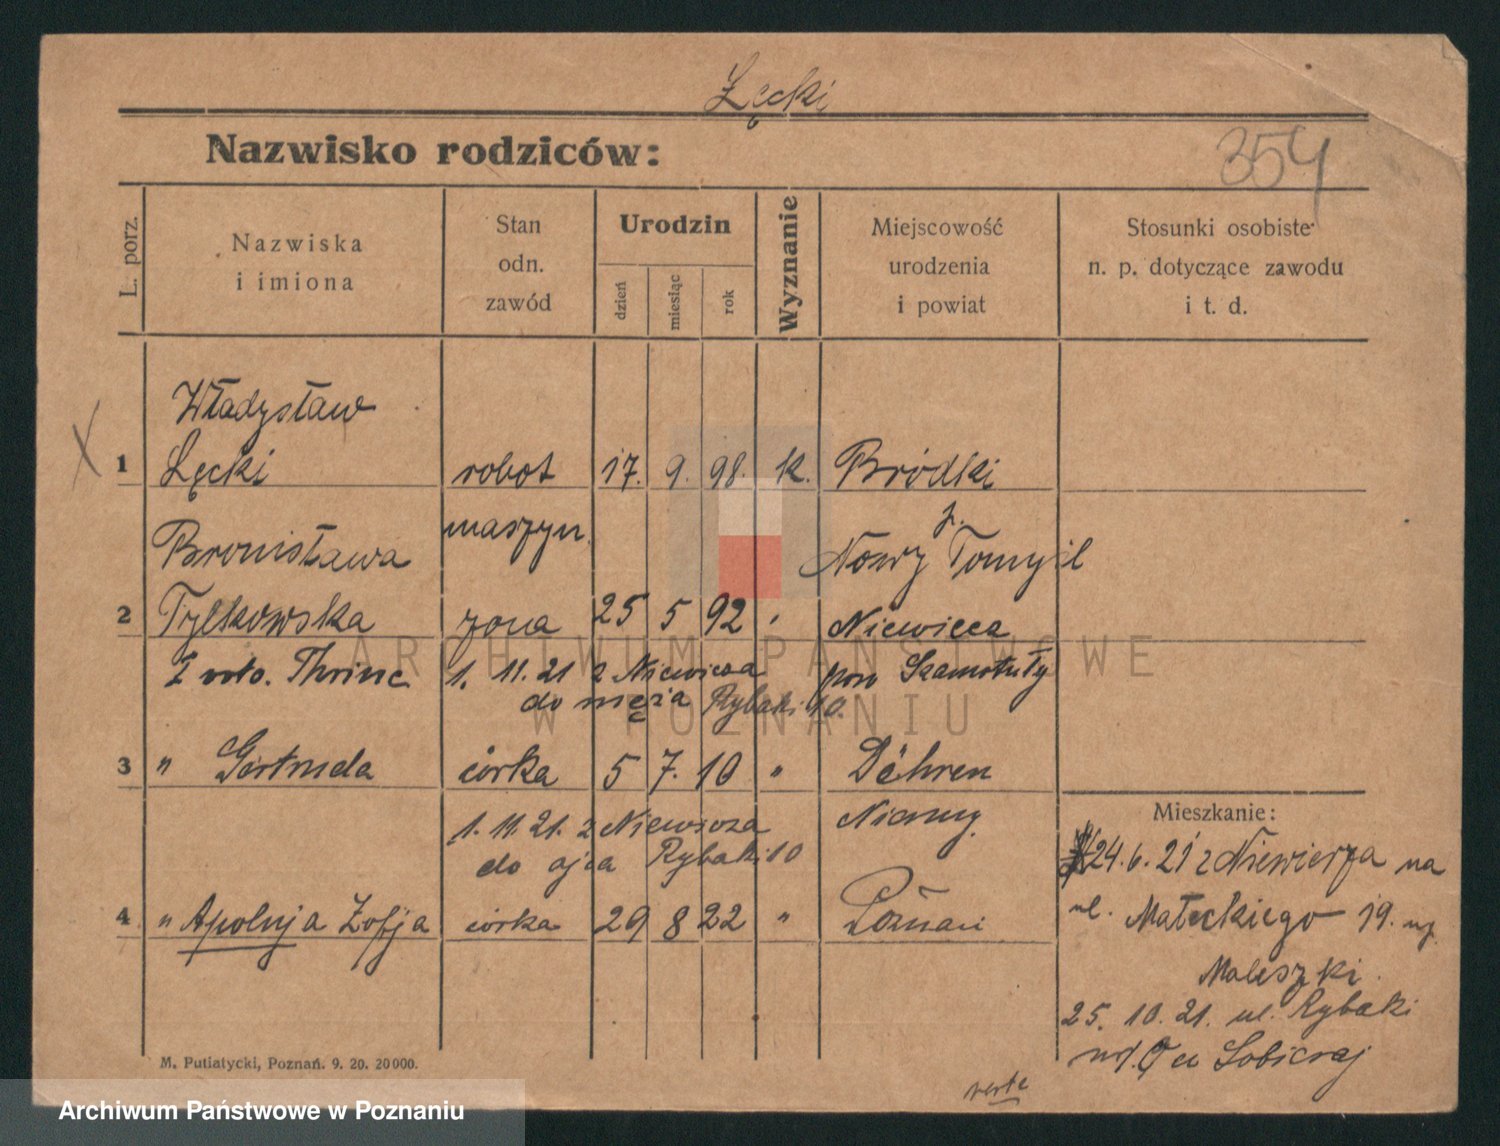 Łęcki
Nazwisko rodziców:
354
L. porz.
Nazwiska
i imiona
Stan
odn.
zawód
Urodzin
dzień
miesiąc
rok
Wyznanie
Miejscowość
urodzenia
i powiat
Stosunki osobiste
n. p. dotyczące zawodu
i t. d.
Władysław
X 1 Łęcki robot 17. 9. 98. k. Bródki
maszyn.
Bronisława Nowy Tomyśl
2 Tylkowska żona 25 5 92 Niewierz
I voto. 1. 11. 21 z Niewierza pow Szamotuły
do męża Rybaki 10.
3 " Gertruda córka 5 7. 10 " Döhren
1. 11. 21. z Niewierza Niemcy.
do ojca Rybaki 10
4 " Apolnja Zofja córka 29 8 22 " Poznań
Mieszkanie:
24. 6. 21 z Niewierza na
ul. Małeckiego 19.
Maleszki
25. 10. 21. ul. Rybaki
verte
M. Putiatycki, Poznań. 9. 20. 20000.
ARCHIWUM PAŃSTWOWE
W POZNANIU
Archiwum Państwowe w Poznaniu